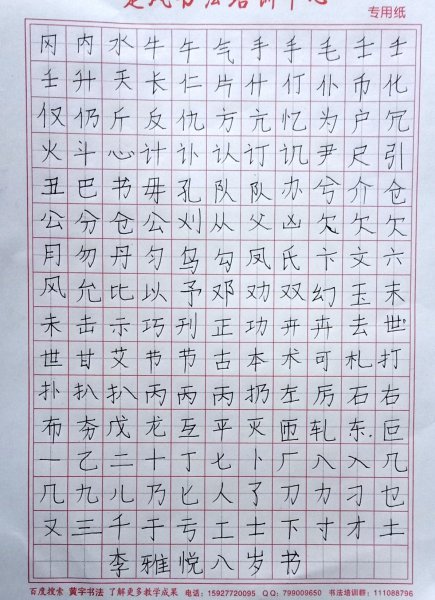 专用纸
冈内水牛午气手手毛壬士
壬升夭长仁片什仃仆币化
仅仍斤反仇方亢忆为户冗
火斗心计讣认订讥尹尺引
丑巴书毋孔队队办兮介仓
公分仓公刈从父凶欠欠欠
月勿丹匀鸟勾凤氏卞文六
风允比以予邓劝双幻玉末
未击示巧刊正功卉卉去世
世甘艾节节古本术可札打
扑扒扒丙丙丙扔左厉石右
布夯戊龙互平灭匝轧东叵
一乙二十丁七卜厂八入几
几九儿乃匕人了刀力刁乜
又三千于亏工士下寸才土
李雅悦八岁书
百度搜索 黄字书法 了解更多教学成果 电话：15927720095 QQ：799009650 书法培训群：111088796